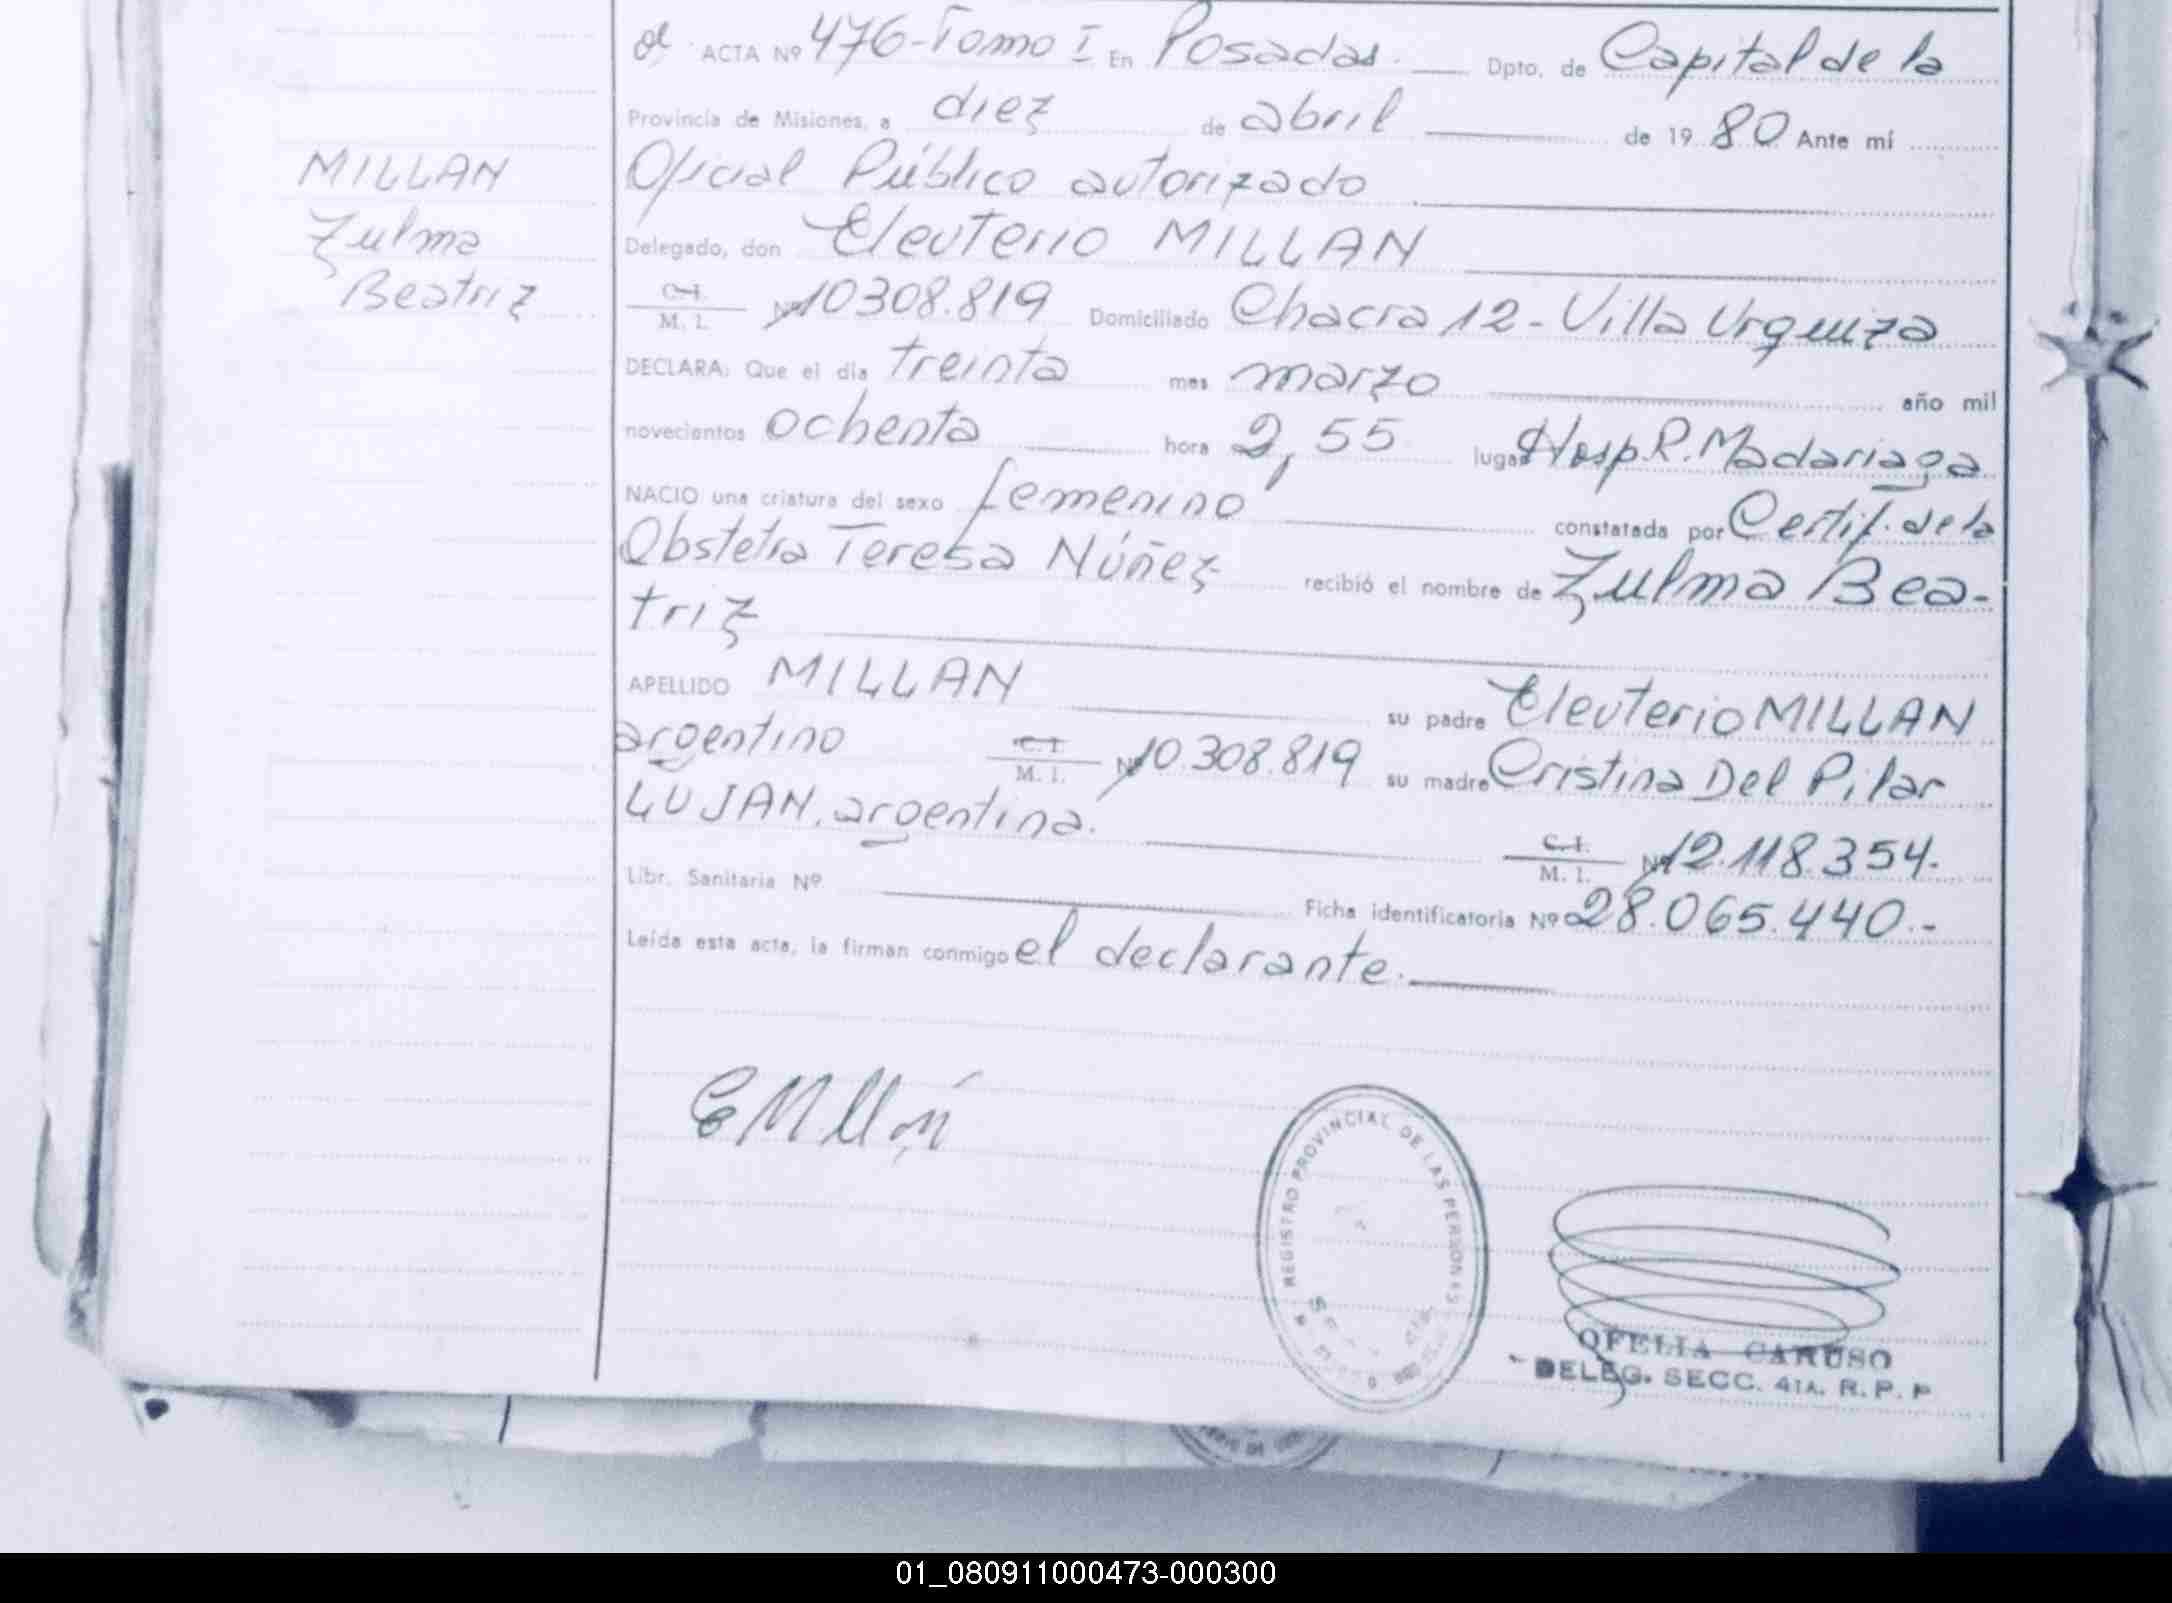 ACTA Nº 476-Tomo I En Posadas. Dpto. de Capital de la
Provincia de Misiones, a diez de abril de 1980 Ante mí
Oficial Público autorizado
Delegado, don Eleuterio MILLAN
C.I. M. I. Nº 10308.819 Domiciliado Chacra 12-Villa Urquiza
DECLARA: Que el día treinta mes marzo año mil
novecientos ochenta hora 2,55 lugar Hosp.R.Madariaga
NACIO una criatura del sexo femenino constatada por Certif. de la
Obstetra Teresa Núñez recibió el nombre de Zulma Bea-
triz
APELLIDO MILLAN su padre Eleuterio MILLAN
argentino C.I. M. I. Nº 10.308.819 su madre Cristina Del Pilar
LUJAN, argentina.
C.I. M. I. Nº 12.118.354.
Libr. Sanitaria Nº Ficha identificatoria Nº 28.065.440.-
Leída esta acta, la firman conmigo el declarante.
MILLAN
Zulma
Beatriz
EMillán
REGISTRO PROVINCIAL DE LAS PERSONAS
OFELIA CARUSO
DELEG. SECC. 4TA. R. P. P
01_080911000473-000300